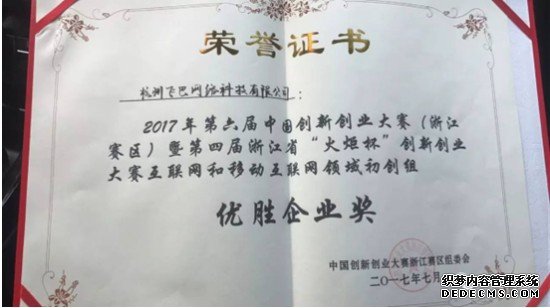 荣誉证书
杭州飞巴网络科技有限公司：
2017年第六届中国创新创业大赛（浙江
赛区）暨第四届浙江省“火炬杯”创新创业
大赛互联网和移动互联网领域初创组
优胜企业奖
中国创新创业大赛浙江赛区组委会
二〇一七年七月
织梦内容管理系统
DEDECMS.COM